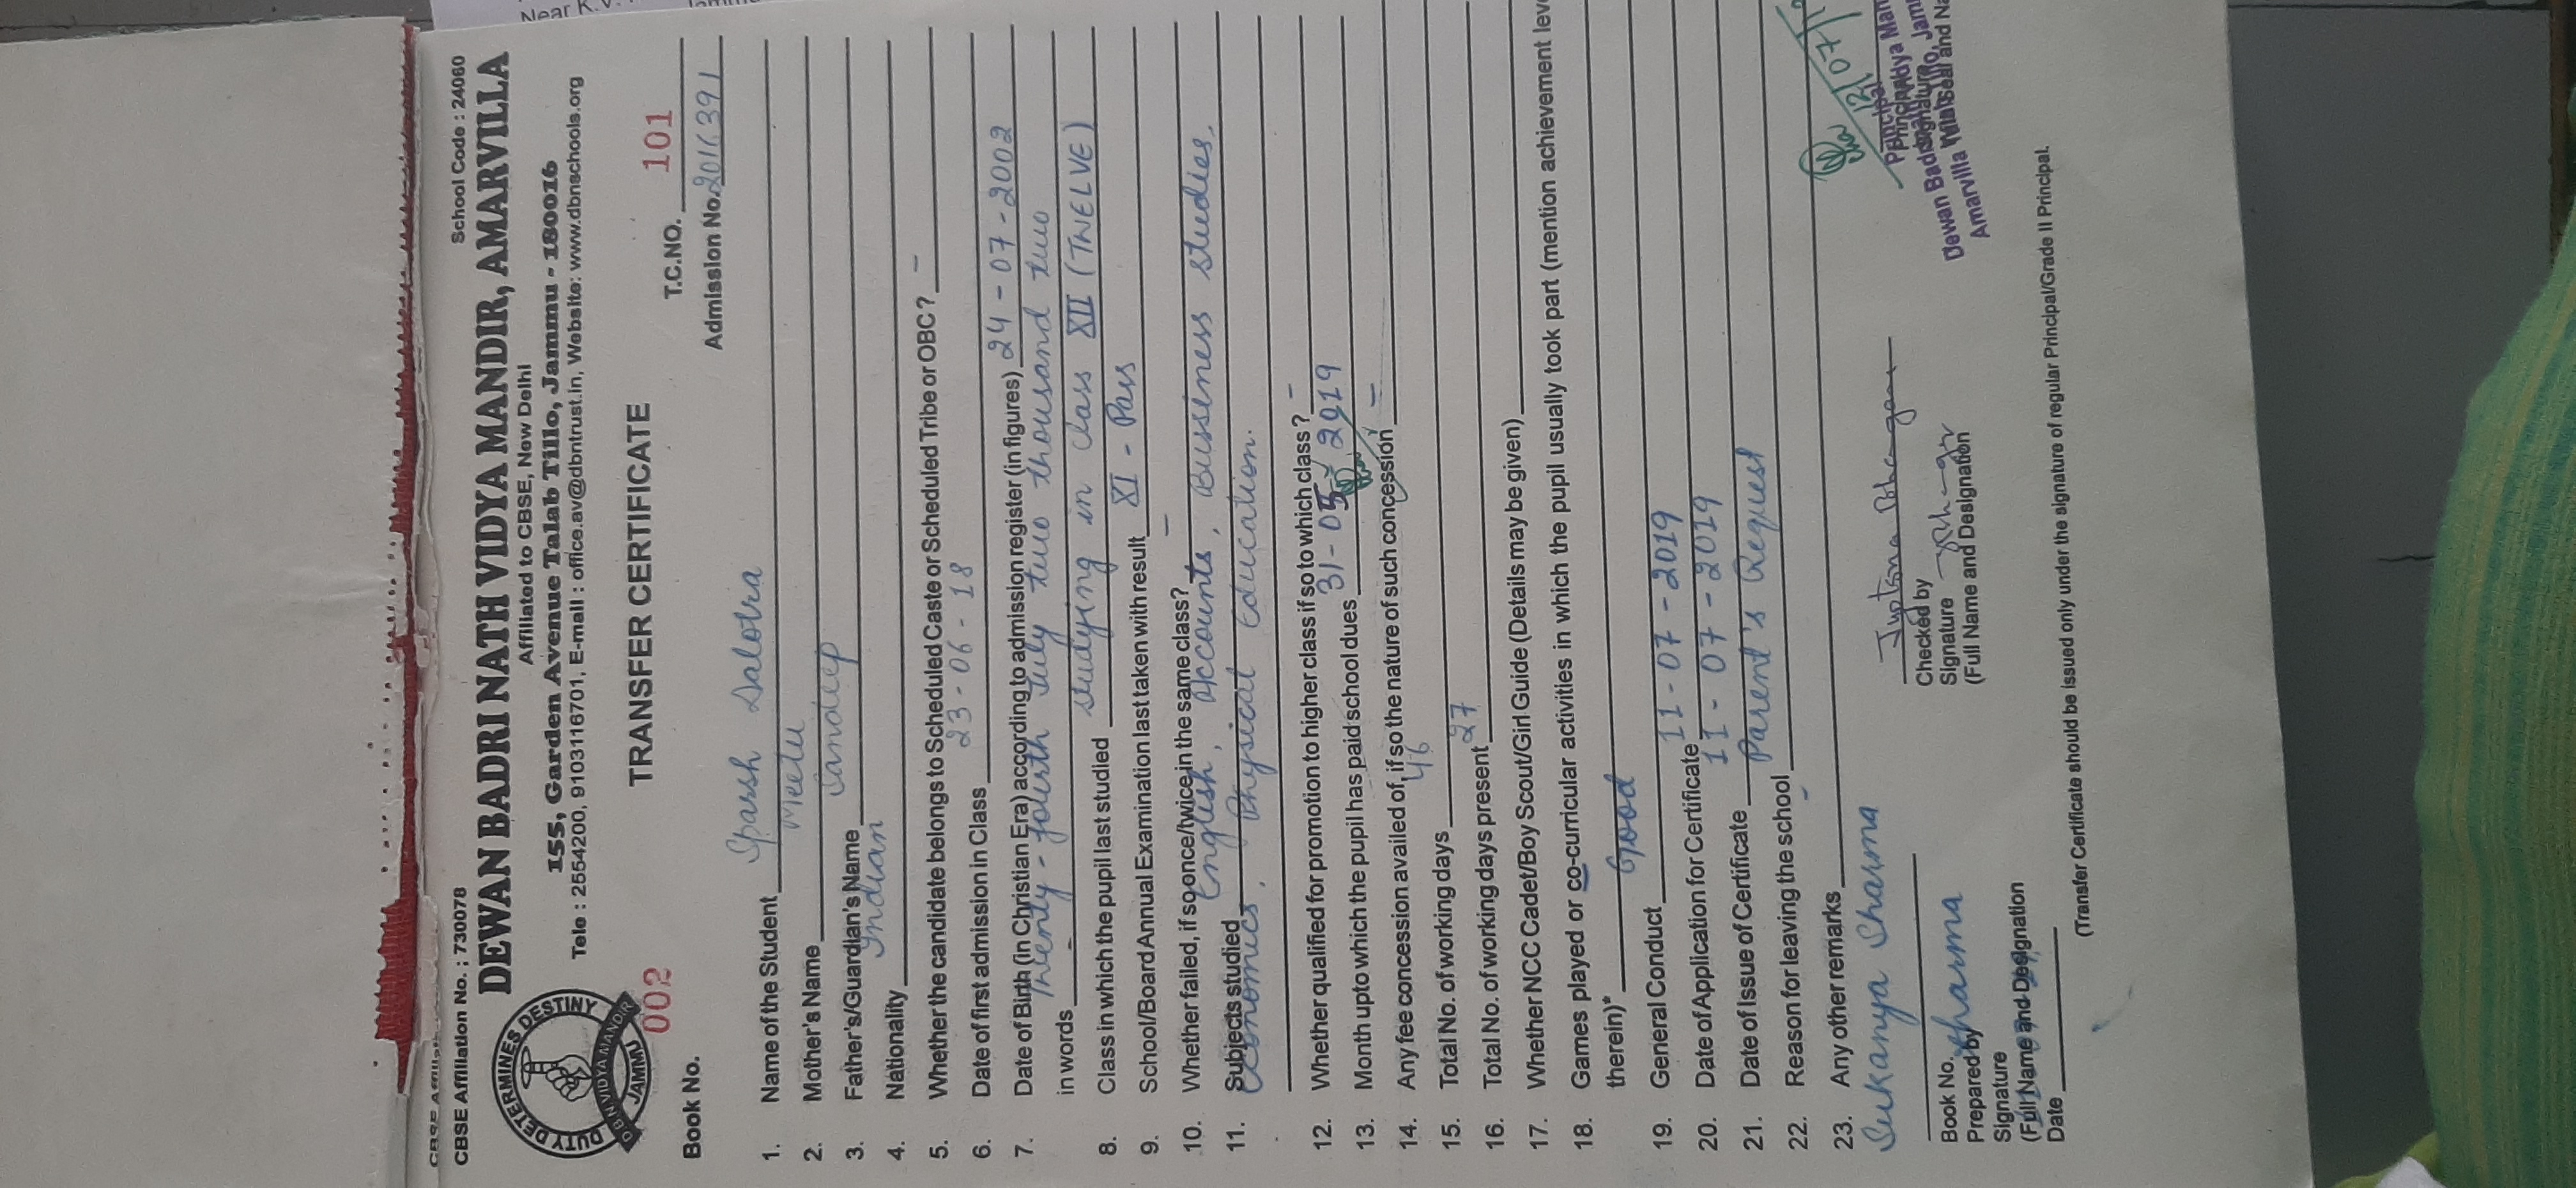 Near K.V.
CBSE Affiliation No. : 730078 School Code : 24060
DEWAN BADRI NATH VIDYA MANDIR, AMARVILLA
Affiliated to CBSE, New Delhi
155, Garden Avenue Talab Tillo, Jammu - 180016
Tele : 2554200, 9103116701, E-mail : office.av@dbntrust.in, Website: www.dbnschools.org
DUTY DETERMINES DESTINY
D.B.N VIDYA MANDIR
JAMMU
TRANSFER CERTIFICATE
Book No. 002 T.C.NO. 101
Admission No.
1. Name of the Student Sparsh Salotra
2. Mother's Name Meetu
3. Father's/Guardian's Name Sandeep
4. Nationality Indian
5. Whether the candidate belongs to Scheduled Caste or Scheduled Tribe or OBC ? -
6. Date of first admission in Class 23 - 06 - 18
7. Date of Birth (in Christian Era) according to admission register (in figures) 24 - 07 - 2002
in words Twenty - fourth July two thousand two
8. Class in which the pupil last studied studying in class XII (TWELVE)
9. School/Board Annual Examination last taken with result XI - Pass
10. Whether failed, if so once/twice in the same class? -
11. Subjects studied English, Accounts, Bussiness studies,
Economics, Physical Education.
12. Whether qualified for promotion to higher class if so to which class ? -
13. Month upto which the pupil has paid school dues 31 - 05 - 2019
14. Any fee concession availed of, if so the nature of such concession -
15. Total No. of working days 46
16. Total No. of working days present 27
17. Whether NCC Cadet/Boy Scout/Girl Guide (Details may be given)
18. Games played or co-curricular activities in which the pupil usually took part (mention achievement
therein)*
19. General Conduct Good
20. Date of Application for Certificate 11 - 07 - 2019
21. Date of Issue of Certificate 11 - 07 - 2019
22. Reason for leaving the school Parent's Request
23. Any other remarks -
Sukanya Sharma
Book No.
Prepared by Sharma
Signature
(Full Name and Designation
Date
Checked by
Signature
(Full Name and Designation)
Principal
Dewan Badri
Amarvilla
(Transfer Certificate should be issued only under the signature of regular Principal/Grade II Principal.